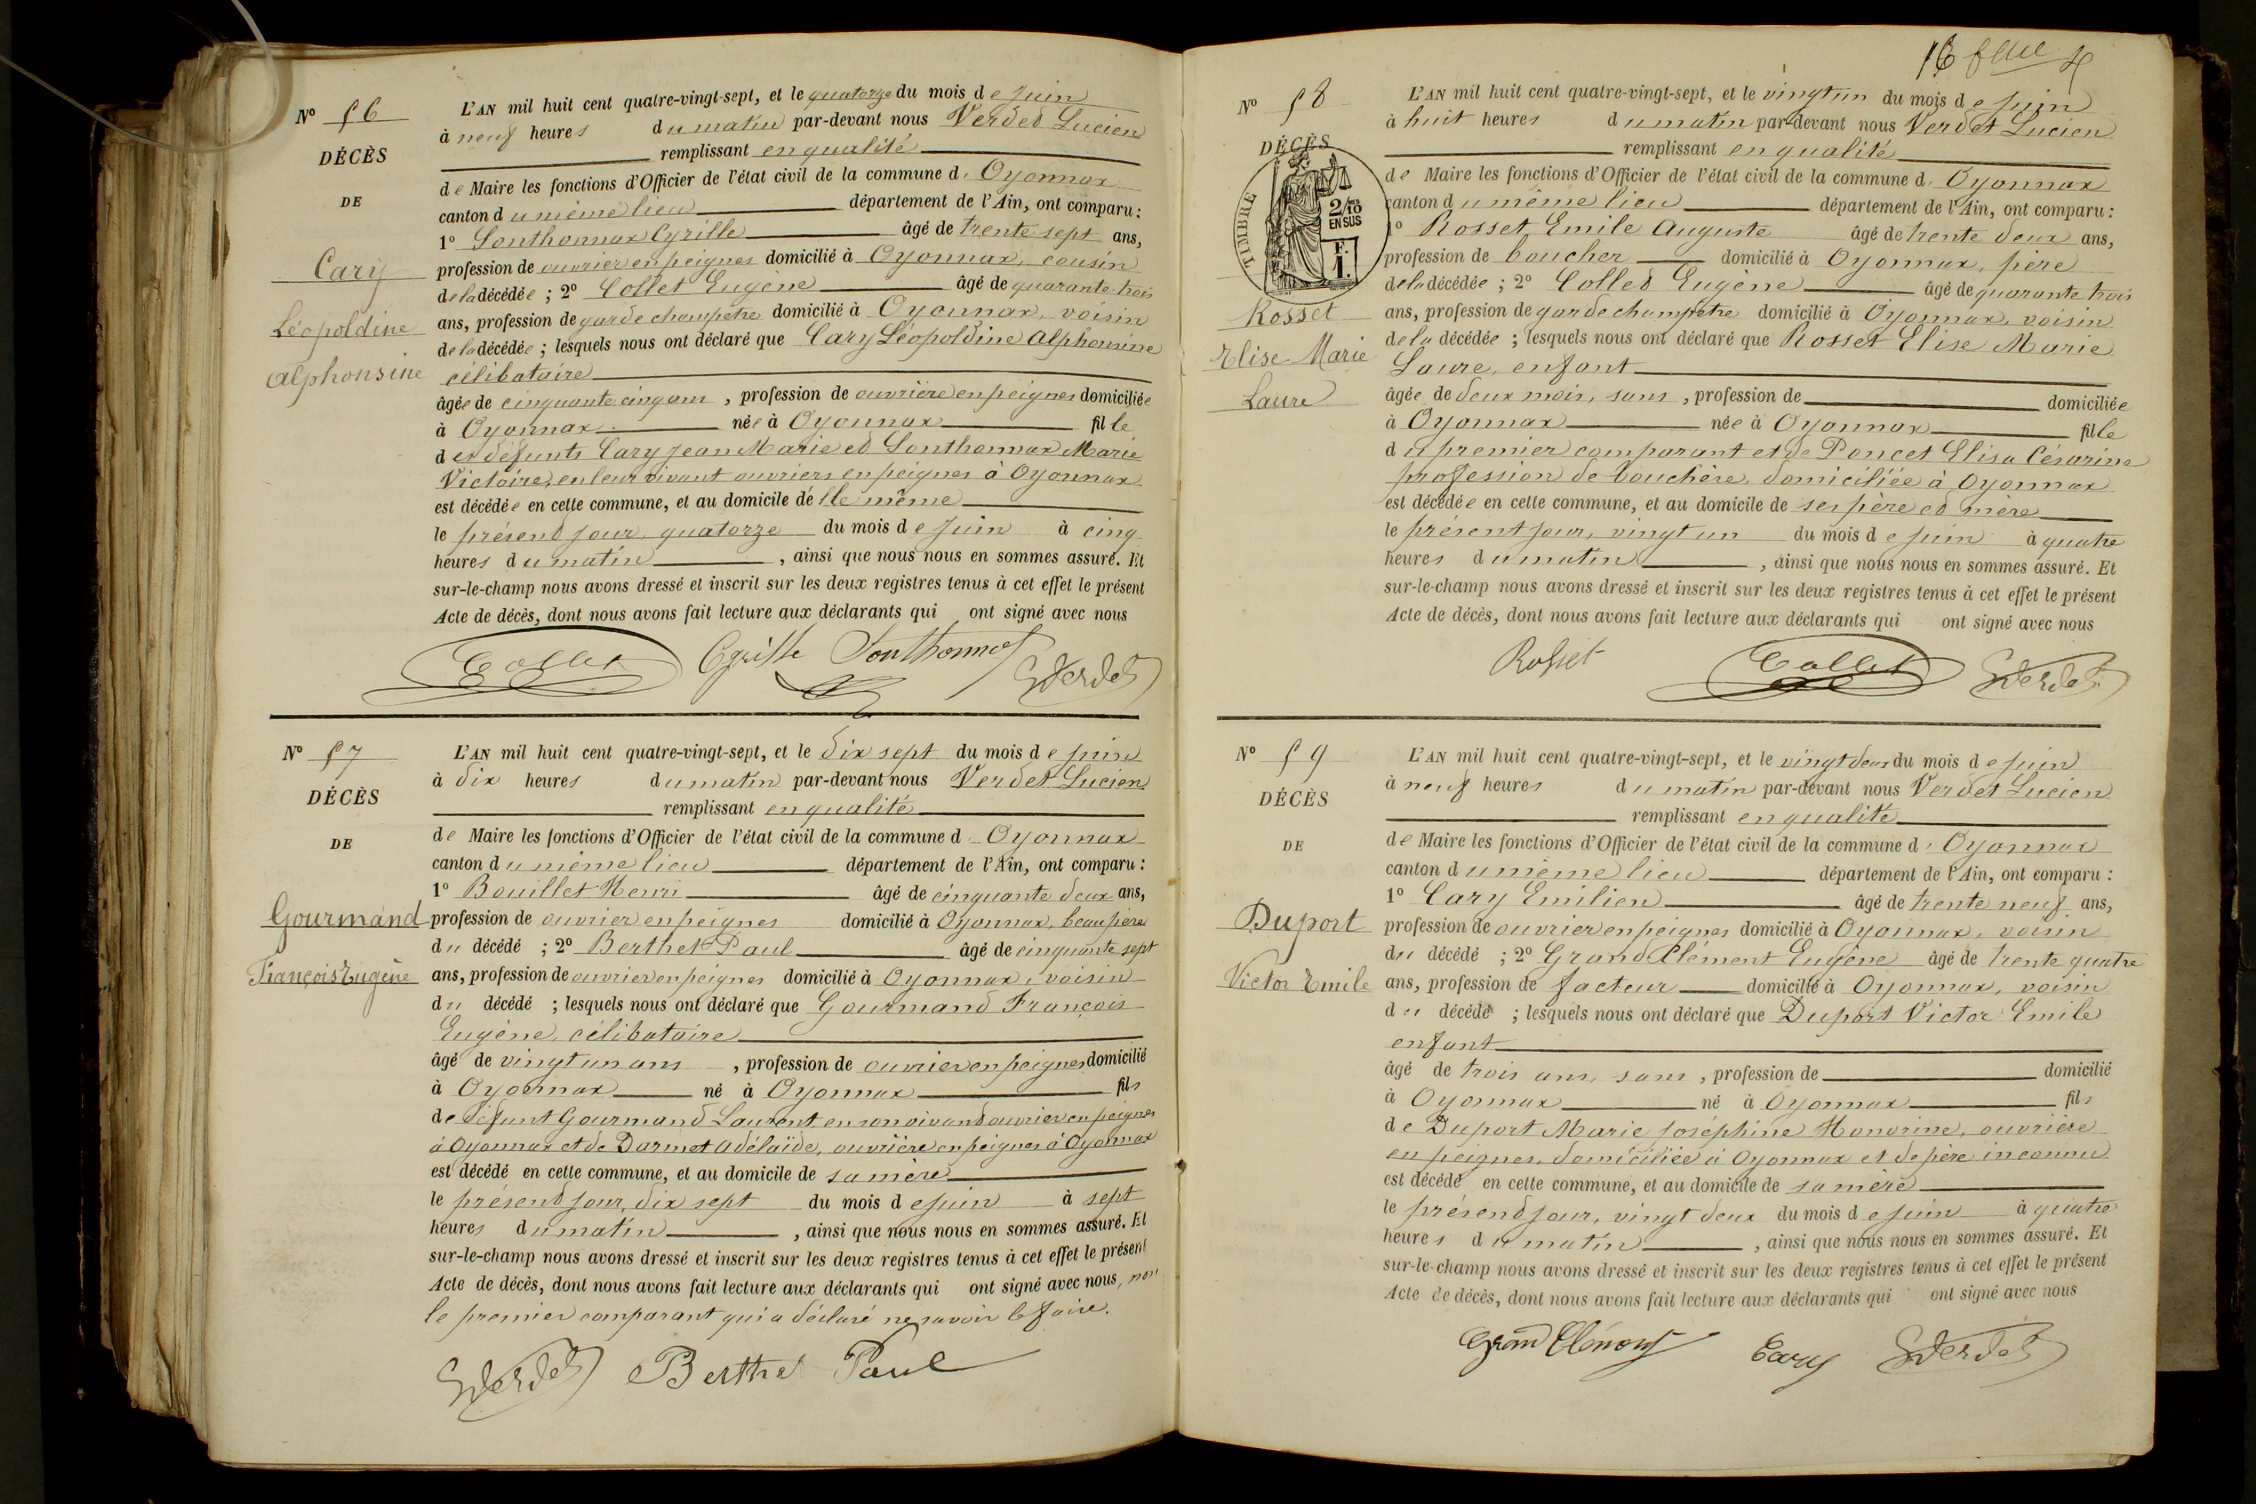 Nº 56
DÉCÈS
DE
Cary
Léopoldine
Alphonsine
L'AN mil huit cent quatre-vingt-sept, et le quatorze du mois de Juin
à neuf heures du matin par-devant nous Verdet Lucien
remplissant en qualité
de Maire les fonctions d'Officier de l'état civil de la commune d' Oyonnax
canton du même lieu département de l'Ain, ont comparu :
1º Sonthonnax Cyrille âgé de trente sept ans,
profession de ouvrier en peignes domicilié à Oyonnax, cousin
de la décédée ; 2º Collet Eugène âgé de quarante trois
ans, profession de garde champêtre domicilié à Oyonnax, voisin
de la décédée ; lesquels nous ont déclaré que Cary Léopoldine Alphonsine
célibataire
âgée de cinquante cinq ans, profession de ouvrière en peignes domiciliée
à Oyonnax née à Oyonnax fille
des défunts Cary Jean Marie et Sonthonnax Marie
Victoire, en leur vivant ouvriers en peignes à Oyonnax
est décédée en cette commune, et au domicile d'elle même
le présent jour, quatorze du mois de Juin à cinq
heures du matin, ainsi que nous nous en sommes assuré. Et
sur-le-champ nous avons dressé et inscrit sur les deux registres tenus à cet effet le présent
Acte de décès, dont nous avons fait lecture aux déclarants qui ont signé avec nous
Collet Cyrille Sonthonnax Verdet
Nº 57
DÉCÈS
DE
Gourmand
François Eugène
L'AN mil huit cent quatre-vingt-sept, et le dix sept du mois de Juin
à dix heures du matin par-devant nous Verdet Lucien
remplissant en qualité
de Maire les fonctions d'Officier de l'état civil de la commune d' Oyonnax
canton du même lieu département de l'Ain, ont comparu :
1º Bouillet Henri âgé de cinquante deux ans,
profession de ouvrier en peignes domicilié à Oyonnax, beau père
du décédé ; 2º Berthet Paul âgé de cinquante sept
ans, profession de ouvrier en peignes domicilié à Oyonnax, voisin
du décédé ; lesquels nous ont déclaré que Gourmand François
Eugène, célibataire
âgé de vingt un ans, profession de ouvrier en peignes domicilié
à Oyonnax né à Oyonnax fils
de défunt Gourmand Laurent en son vivant ouvrier en peignes
à Oyonnax et de Darmet Adélaïde, ouvrière en peignes à Oyonnax
est décédé en cette commune, et au domicile de sa mère
le présent jour, dix sept du mois de Juin à sept
heures du matin, ainsi que nous nous en sommes assuré. Et
sur-le-champ nous avons dressé et inscrit sur les deux registres tenus à cet effet le présent
Acte de décès, dont nous avons fait lecture aux déclarants qui ont signé avec nous, non
le premier comparant qui a déclaré ne savoir le faire.
Verdet Berthet Paul
Nº 58
DÉCÈS
TIMBRE
2/10
EN SUS
Rosset
Elise Marie
Laure
L'AN mil huit cent quatre-vingt-sept, et le vingt un du mois de Juin
à huit heures du matin par-devant nous Verdet Lucien
remplissant en qualité
de Maire les fonctions d'Officier de l'état civil de la commune d' Oyonnax
canton du même lieu département de l'Ain, ont comparu :
1º Rosset Emile Auguste âgé de trente deux ans,
profession de boucher domicilié à Oyonnax, père
de la décédée ; 2º Collet Eugène âgé de quarante trois
ans, profession de garde champêtre domicilié à Oyonnax, voisin
de la décédée ; lesquels nous ont déclaré que Rosset Elise Marie
Laure, enfant
âgée de deux mois, sans, profession de domiciliée
à Oyonnax née à Oyonnax fille
du premier comparant et de Poncet Elisa Césarine
profession de bouchère, domiciliée à Oyonnax
est décédée en cette commune, et au domicile de ses père et mère
le présent jour, vingt un du mois de Juin à quatre
heures du matin, ainsi que nous nous en sommes assuré. Et
sur-le-champ nous avons dressé et inscrit sur les deux registres tenus à cet effet le présent
Acte de décès, dont nous avons fait lecture aux déclarants qui ont signé avec nous
Rosset Collet Verdet
Nº 59
DÉCÈS
DE
Duport
Victor Emile
L'AN mil huit cent quatre-vingt-sept, et le vingt deux du mois de Juin
à neuf heures du matin par-devant nous Verdet Lucien
remplissant en qualité
de Maire les fonctions d'Officier de l'état civil de la commune d' Oyonnax
canton du même lieu département de l'Ain, ont comparu :
1º Cary Emilien âgé de trente neuf ans,
profession de ouvrier en peignes domicilié à Oyonnax, voisin
du décédé ; 2º Grand Clément Eugène âgé de trente quatre
ans, profession de facteur domicilié à Oyonnax, voisin
du décédé ; lesquels nous ont déclaré que Duport Victor Emile
enfant
âgé de trois ans, sans, profession de domicilié
à Oyonnax né à Oyonnax fils
de Duport Marie Joséphine Honorine, ouvrière
en peignes, domiciliée à Oyonnax et de père inconnu
est décédé en cette commune, et au domicile de sa mère
le présent jour, vingt deux du mois de Juin à quatre
heures du matin, ainsi que nous nous en sommes assuré. Et
sur-le-champ nous avons dressé et inscrit sur les deux registres tenus à cet effet le présent
Acte de décès, dont nous avons fait lecture aux déclarants qui ont signé avec nous
Grand Clément Cary Verdet